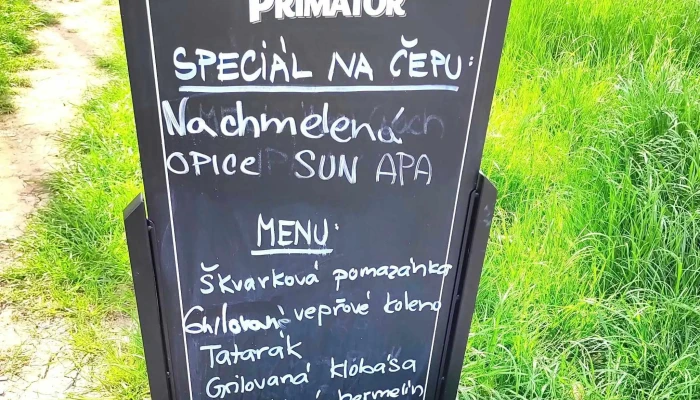 PRIMÁTOR
SPECIÁL NA ČEPU:
Nachmelená
OPICE SUN APA
MENU:
Škvarková pomazánka
Grilované vepřové koleno
Tatarák
Grilovaná klobása
hermelín